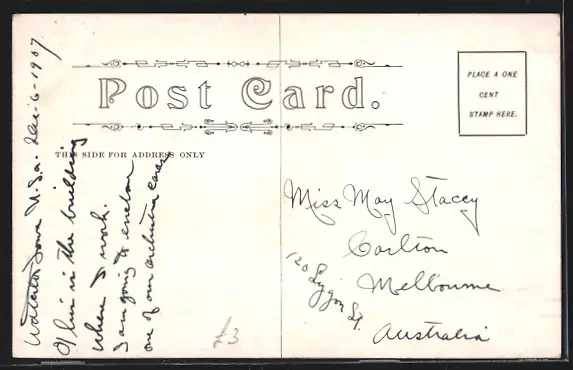 Post Card.
THIS SIDE FOR ADDRESS ONLY
PLACE A ONE
CENT
STAMP HERE.
Waterloo Iowa U.S.a. Dec-6-1907
in the building
where I work.
I am going to enclose
one of our orchestra cards
Miss May Stacey
Carlton
120 Lygon St.
Melbourne
Australia
£3